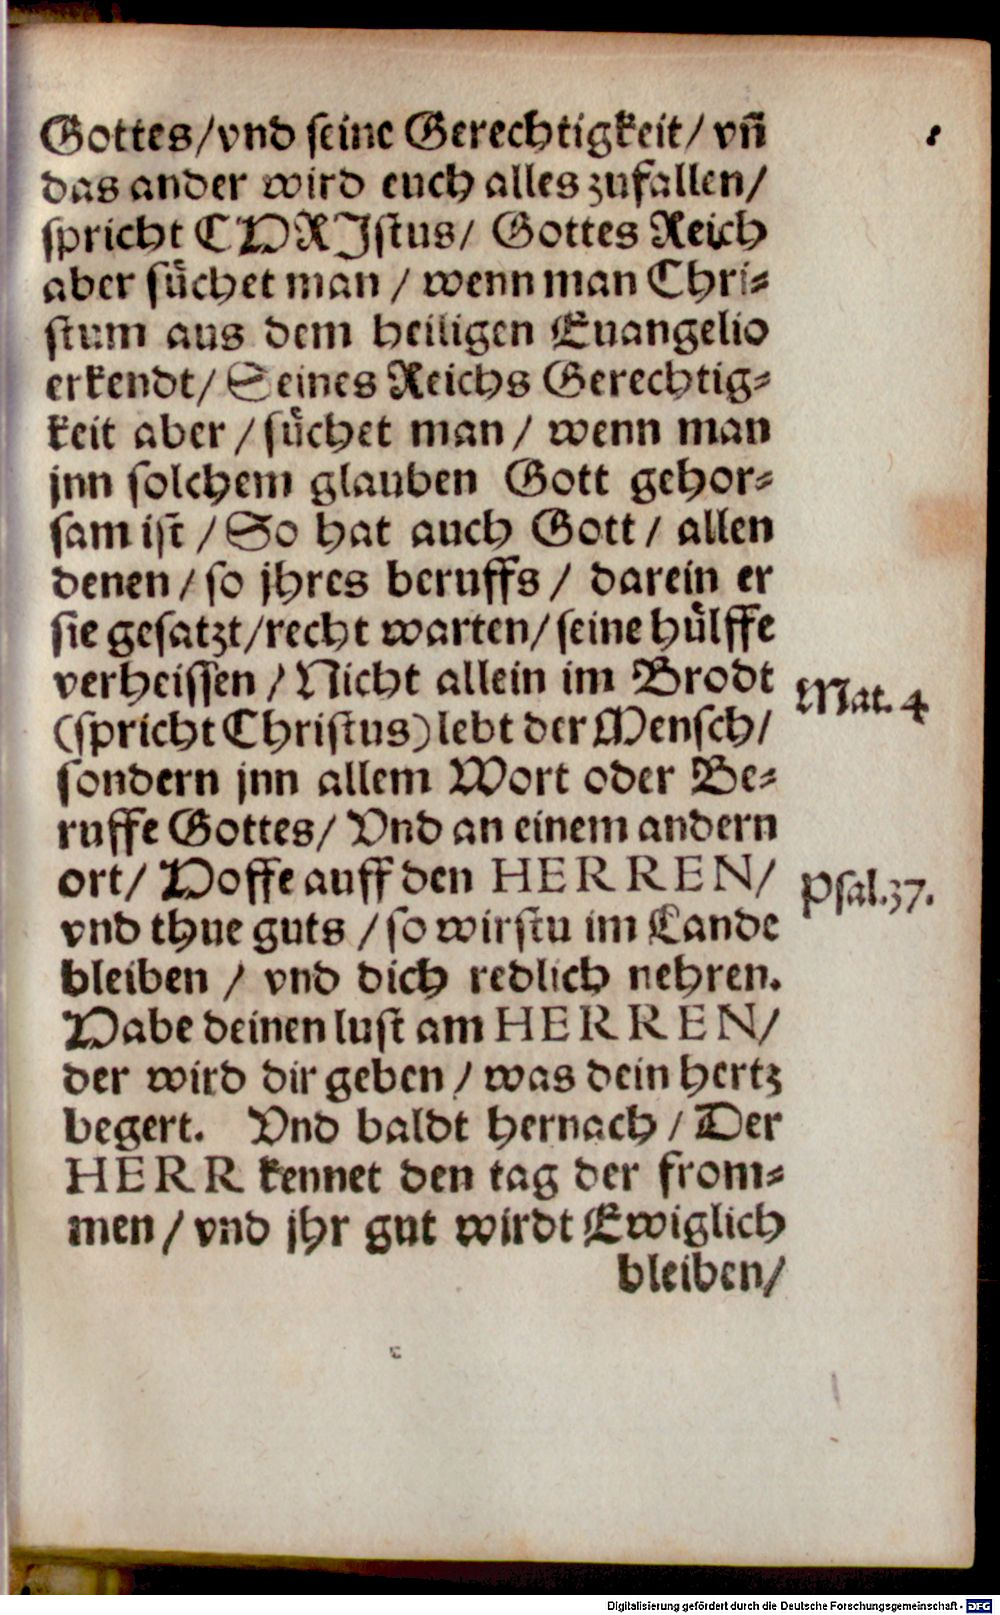 Gottes/vnd seine Gerechtigkeit/ vn̄
das ander wird euch alles zufallen/
spricht CHRIstus/ Gottes Reich
aber sůchet man / wenn man Chri-
stum aus dem heiligen Euangelio
erkendt/ Seines Reichs Gerechtig-
keit aber / sůchet man / wenn man
jnn solchem glauben Gott gehor-
sam ist / So hat auch Gott / allen
denen / so jhres beruffs / darein er
sie gesatzt/recht warten/ seine hůlffe
verheissen / Nicht allein im Brodt
(spricht Christus) lebt der Mensch/
sondern jnn allem Wort oder Be-
ruffe Gottes/ Vnd an einem andern
ort/ Hoffe auff den HERREN/
vnd thue guts / so wirstu im Lande
bleiben / vnd dich redlich nehren.
Habe deinen lust am HERREN/
der wird dir geben / was dein hertz
begert. Vnd baldt hernach / Der
HERR kennet den tag der from-
men / vnd jhr gut wirdt Ewiglich
bleiben/
Mat. 4
Psal. 37.
Digitalisierung gefördert durch die Deutsche Forschungsgemeinschaft - DFG